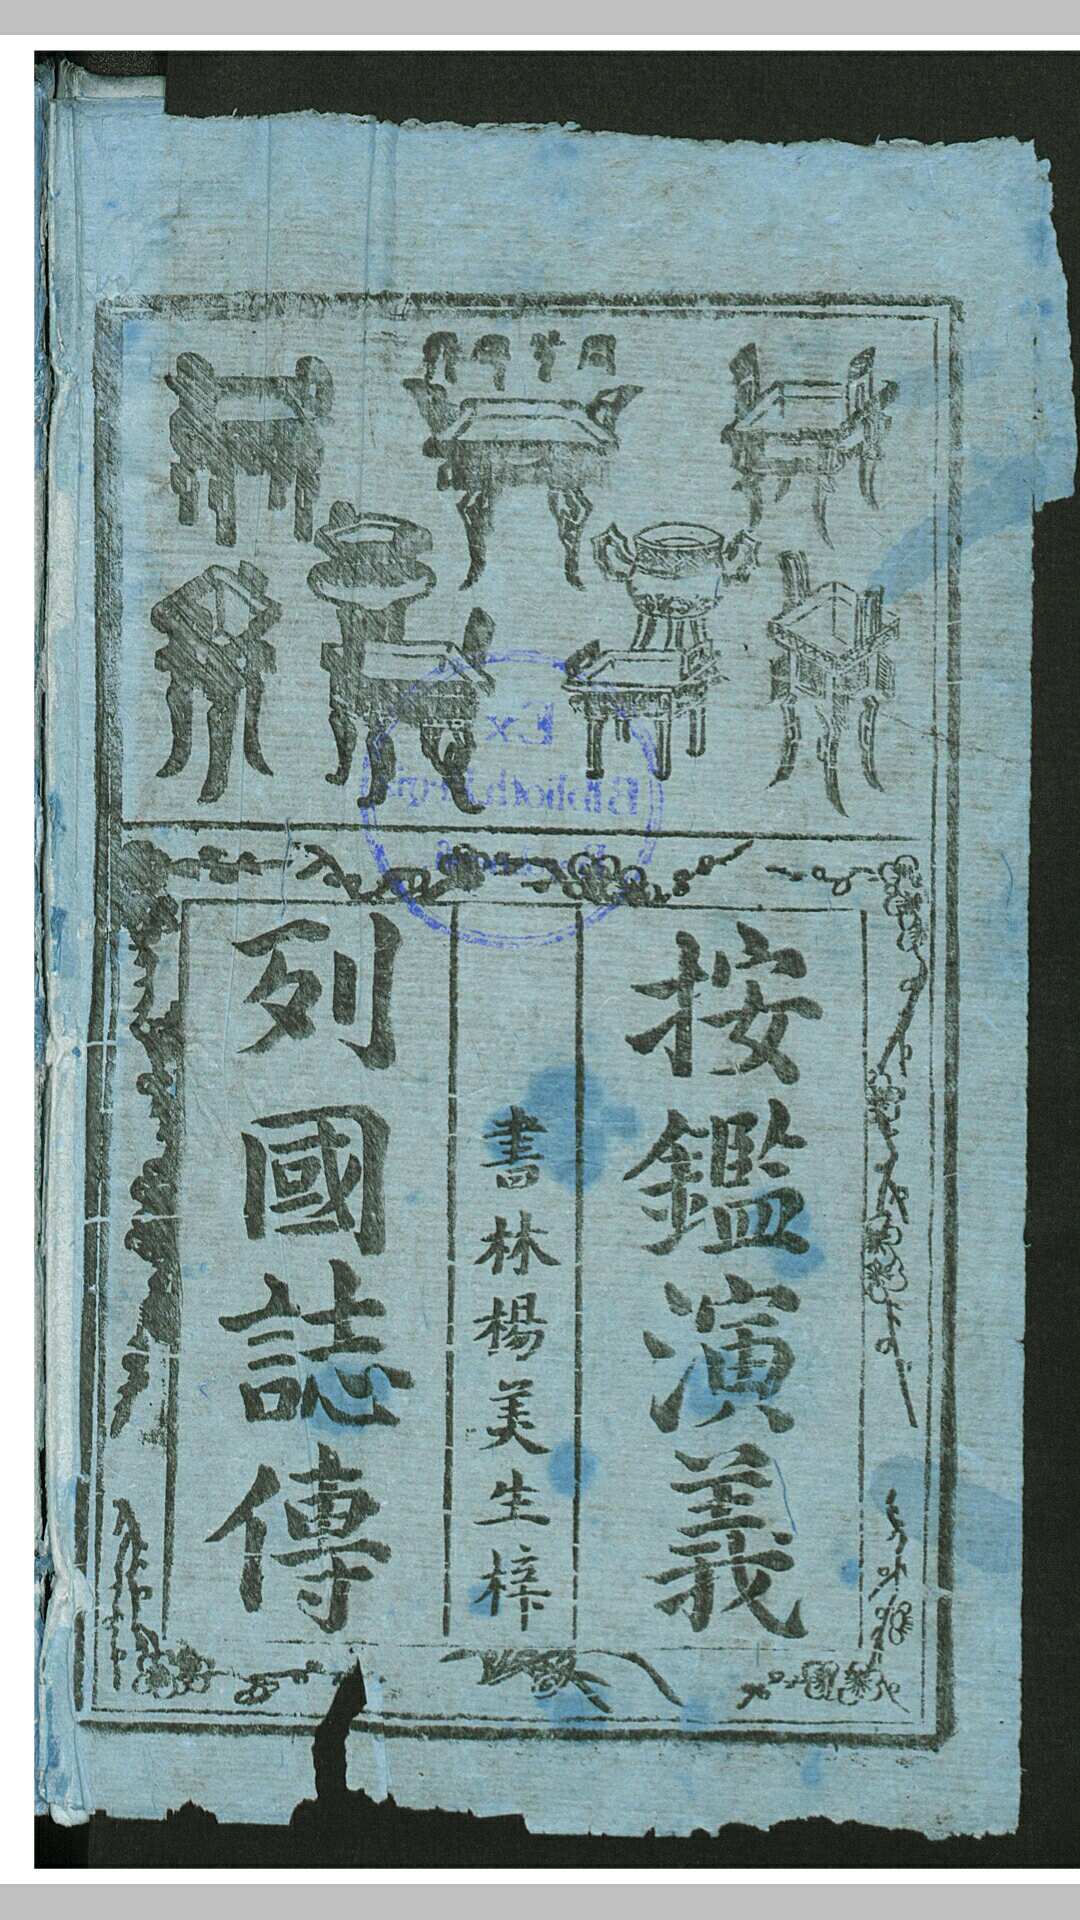 按鑑演義
書林楊美生梓
列國誌傳
Ex
Biblioth. Regia